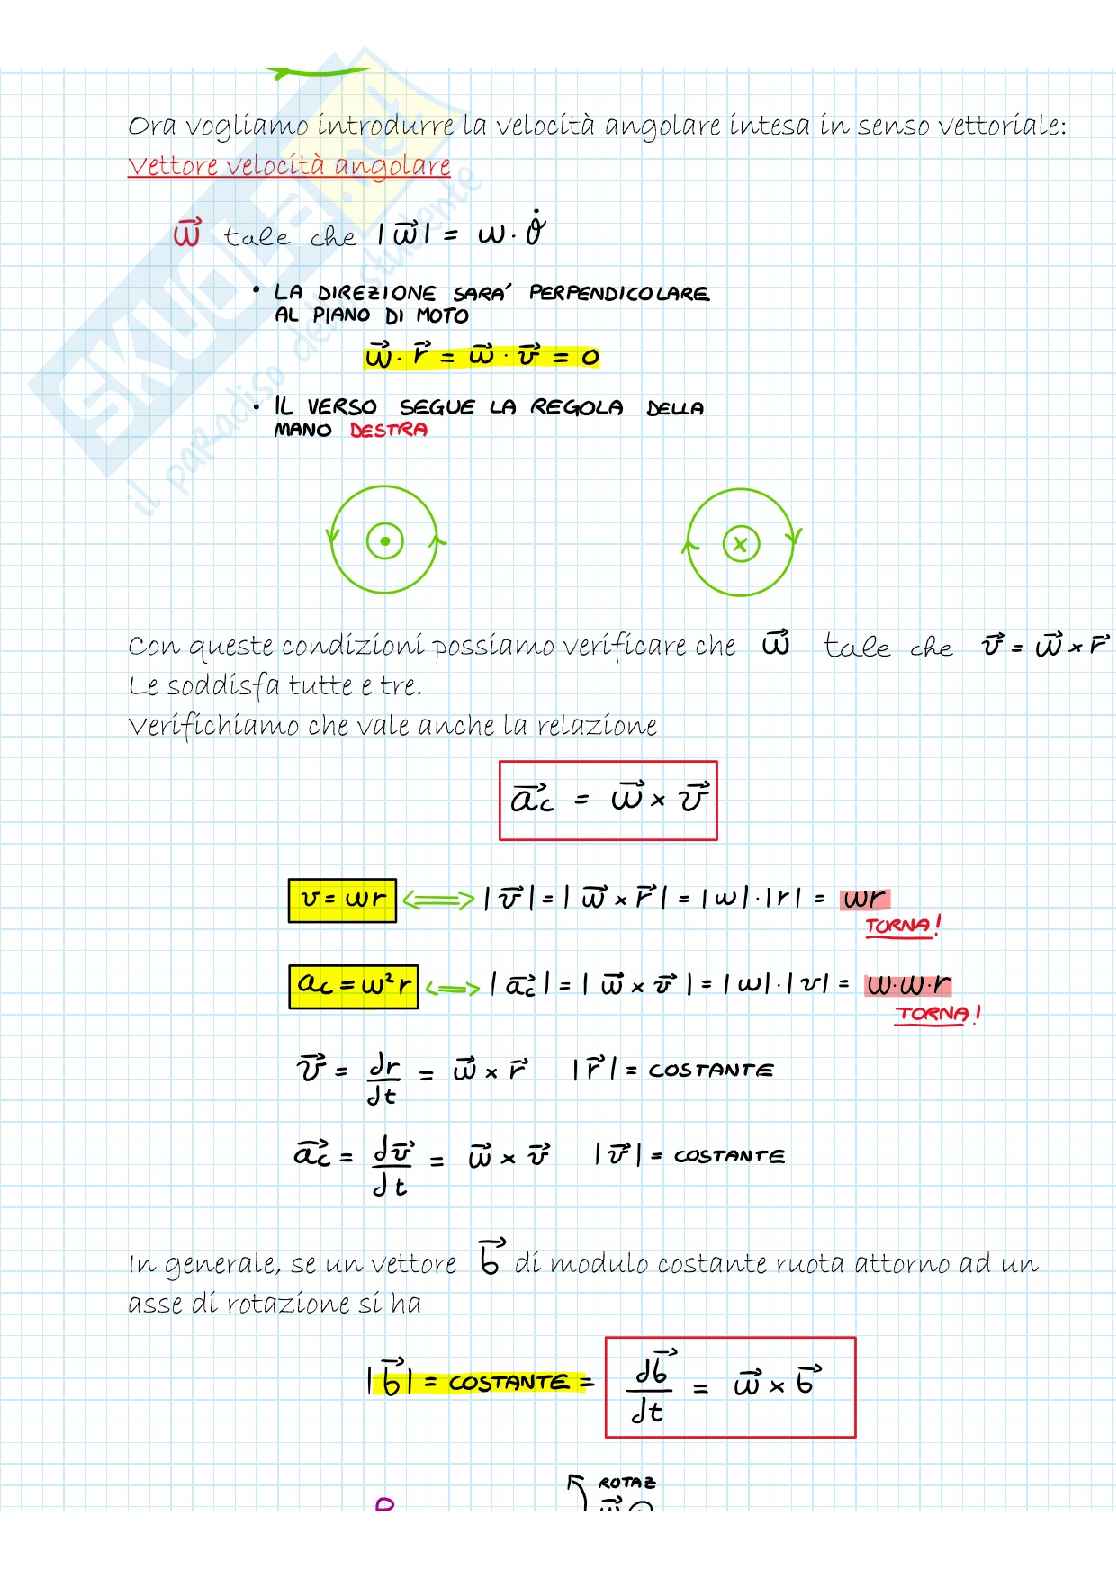 Ora vogliamo introdurre la velocità angolare intesa in senso vettoriale:
Vettore velocità angolare
ω⃗ tale che |ω⃗| = ω · θ̇
• LA DIREZIONE SARA' PERPENDICOLARE
AL PIANO DI MOTO
ω⃗ · r⃗ = ω⃗ · v⃗ = 0
• IL VERSO SEGUE LA REGOLA DELLA
MANO DESTRA
Con queste condizioni possiamo verificare che ω⃗ tale che v⃗ = ω⃗ × r⃗
Le soddisfa tutte e tre.
Verifichiamo che vale anche la relazione
a⃗c = ω⃗ × v⃗
v = ωr ⟺ |v⃗| = |ω⃗ × r⃗| = |ω| · |r| = ωr
TORNA!
ac = ω² r ⟺ |a⃗c| = |ω⃗ × v⃗| = |ω| · |v| = ω·ω·r
TORNA!
v⃗ = dr/dt = ω⃗ × r⃗ |r⃗| = COSTANTE
a⃗c = dv⃗/dt = ω⃗ × v⃗ |v⃗| = COSTANTE
In generale, se un vettore b⃗ di modulo costante ruota attorno ad un
asse di rotazione si ha
|b⃗| = COSTANTE = db⃗/dt = ω⃗ × b⃗
ROTAZ
ω⃗
SKUOLA.net
il paradiso dello studente